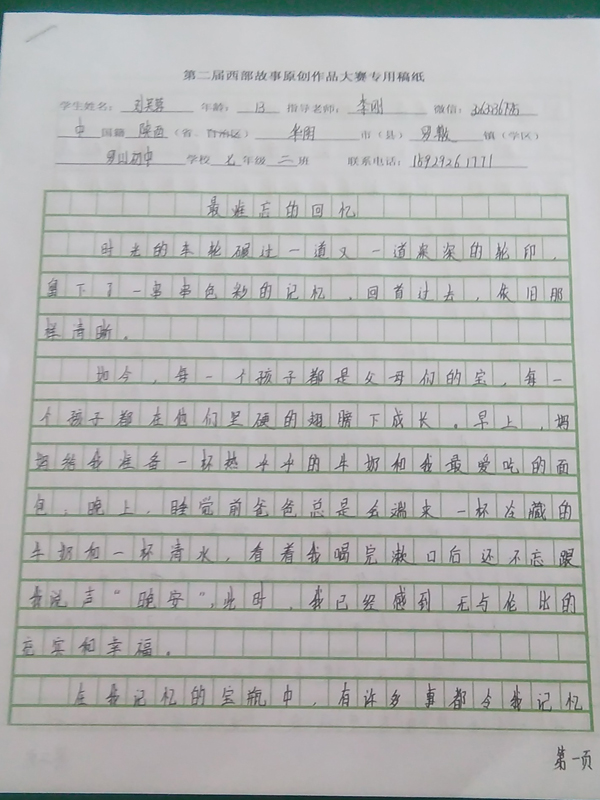 第二届西部故事原创作品大赛专用稿纸
学生姓名： 年龄：13 指导老师：李刚 微信：
中 国籍 陕西（省、自治区） 市（县） 镇（学区）
初中 学校 七 年级 二 班 联系电话：15929261771
最难忘的回忆
时光的车轮碾过一道又一道深深的轮印，
留下了一串串色彩的记忆，回首过去，依旧那
样清晰。
如今，每一个孩子都是父母们的宝，每一
个孩子都在他们坚硬的翅膀下成长。早上，妈
妈给我准备一杯热乎乎的牛奶和我最爱吃的面
包；晚上，睡觉前爸爸总是会端来一杯冷藏的
牛奶和一杯清水，看着我喝完漱口后还不忘跟
我说声“晚安”，此时，我已经感到无与伦比的
充实和幸福。
在我记忆的宝瓶中，有许多事都令我记忆
第一页